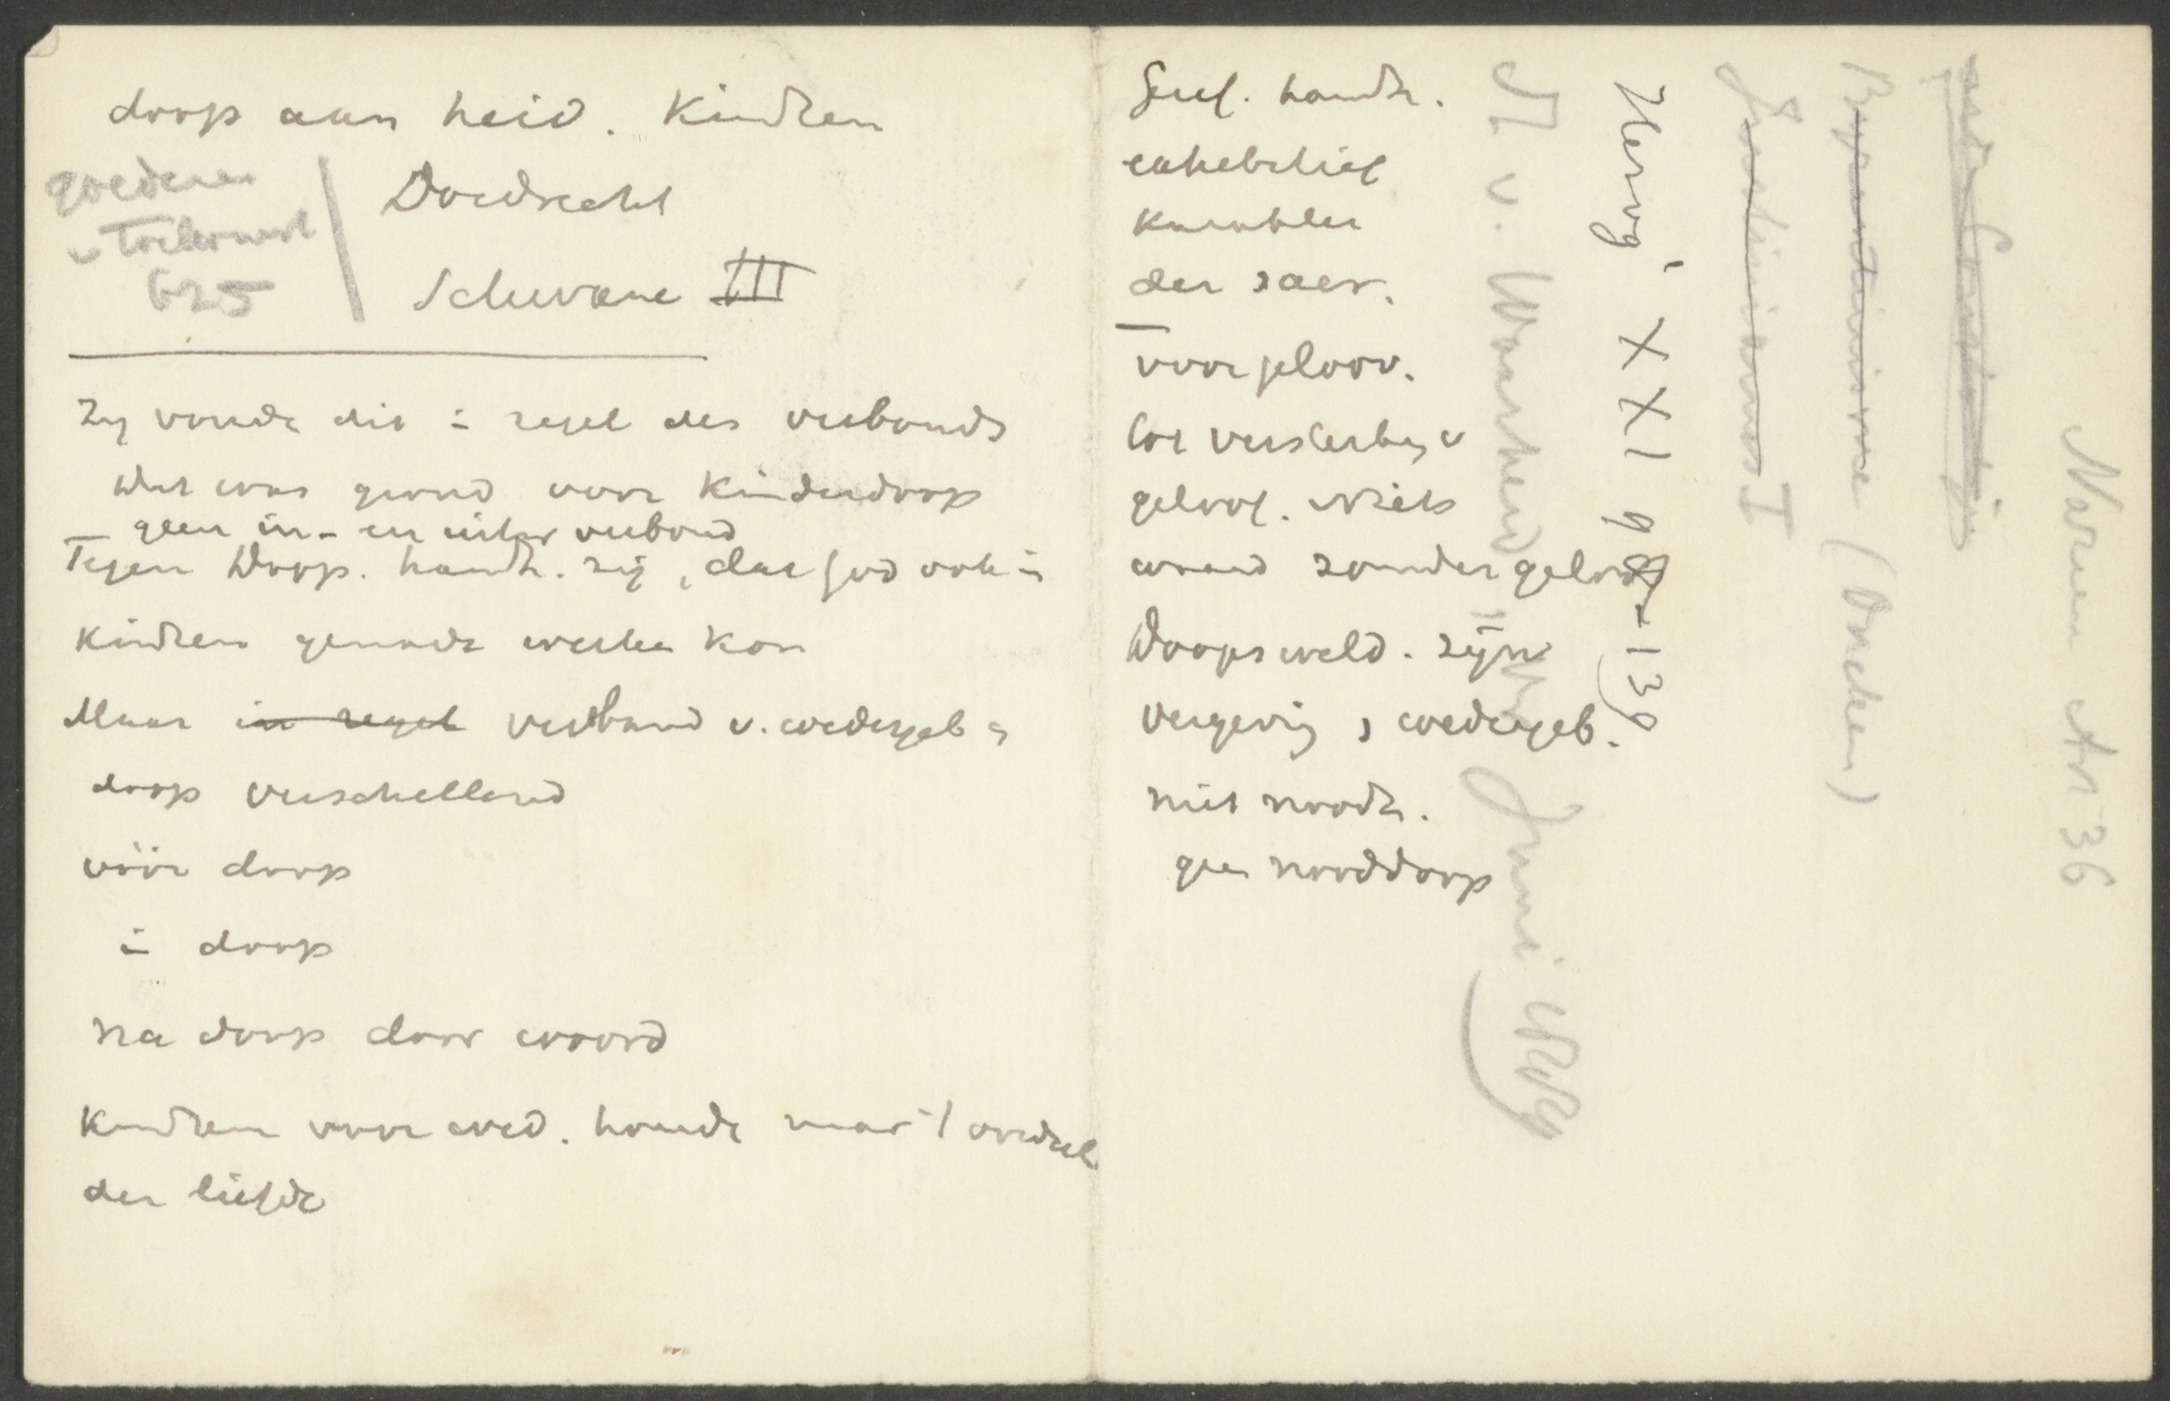 doop aan heid. Kindren
goederen
v Toekomst
625
Dordrecht
Schwane III
Zy vonde dit i regel des verbonds
dit was grond voor kinderdoop
geen in- en uitw verbond
Tegen Doop. handh. zij, dat God ook i
Kindren genade werke kon
Maar in regel verband v. wedergeb
doop verschillend
vóór doop
i doop
na doop door woord
Kindren voor wed. houde naar 't oordeel
der liefde
Geref. handh.
Karakter
der sacr.
voor geloov.
tot versterking v
geloof. Niets
waard zonder geloof
Doopsweld. zijn
vergeving, wedergeb.
niet noodz.
geen nooddoop
N v. Waarheid Juni
Herzog XXI 98-139
Justinianus I
Byzantinisme (Oncken)
Normen Art 36